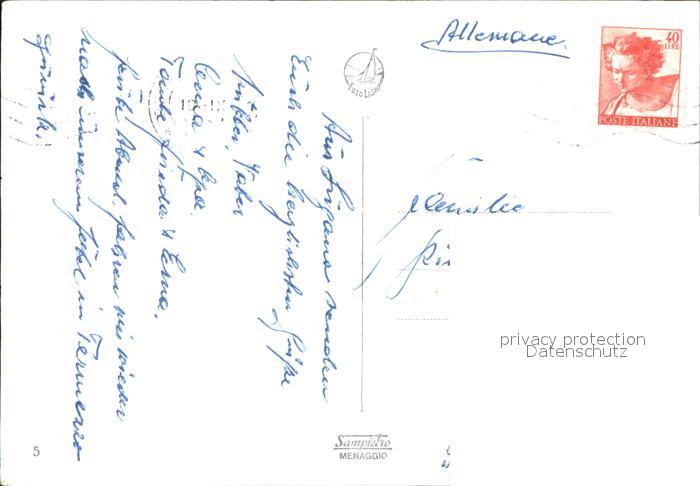 Allemane.
40
LIRE
POSTE ITALIANE
FOTO LAGO
Aus Lugano senden
Euch die herzlichsten Grüße
Mutter, Vater
Tante Frieda & Erna.
heute Abend fahren wir wieder
nach unserem Hotel in Tremezzo
zurück.
Familie
privacy protection
Datenschutz
5
Sampietro
MENAGGIO